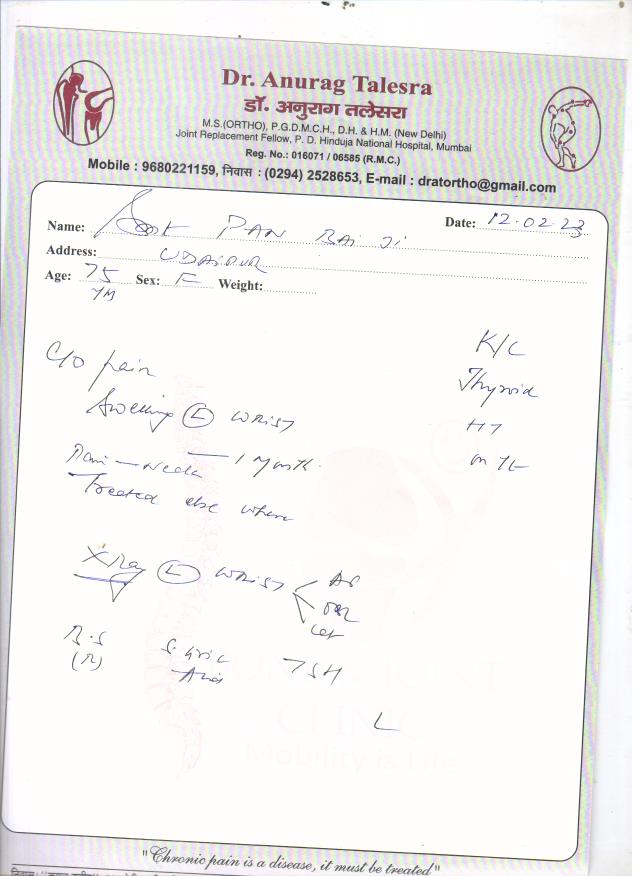 Dr. Anurag Talesra
डॉ. अनुराग तलेसरा
M.S.(ORTHO), P.G.D.M.C.H., D.H. & H.M. (New Delhi)
Joint Replacement Fellow, P. D. Hinduja National Hospital, Mumbai
Reg. No.: 016071 / 06585 (R.M.C.)
Mobile : 9680221159, निवास : (0294) 2528653, E-mail : dratortho@gmail.com
Name: PAN BAI JI Date: 12.02.23
Address: UDAIPUR
Age: 75 Sex: F Weight:
K/C
C/O pain
Thyroid
Swelling (L) WRIST
HT
Pain - Neck — 1 Month
on Tt
Treated else where
X Ray (L) WRIST AP
OBL
Lat
B.S (R) S. Uric Acid TSH
JOINT
CLINIC
Mobility is Life
"Chronic pain is a disease, it must be treated"